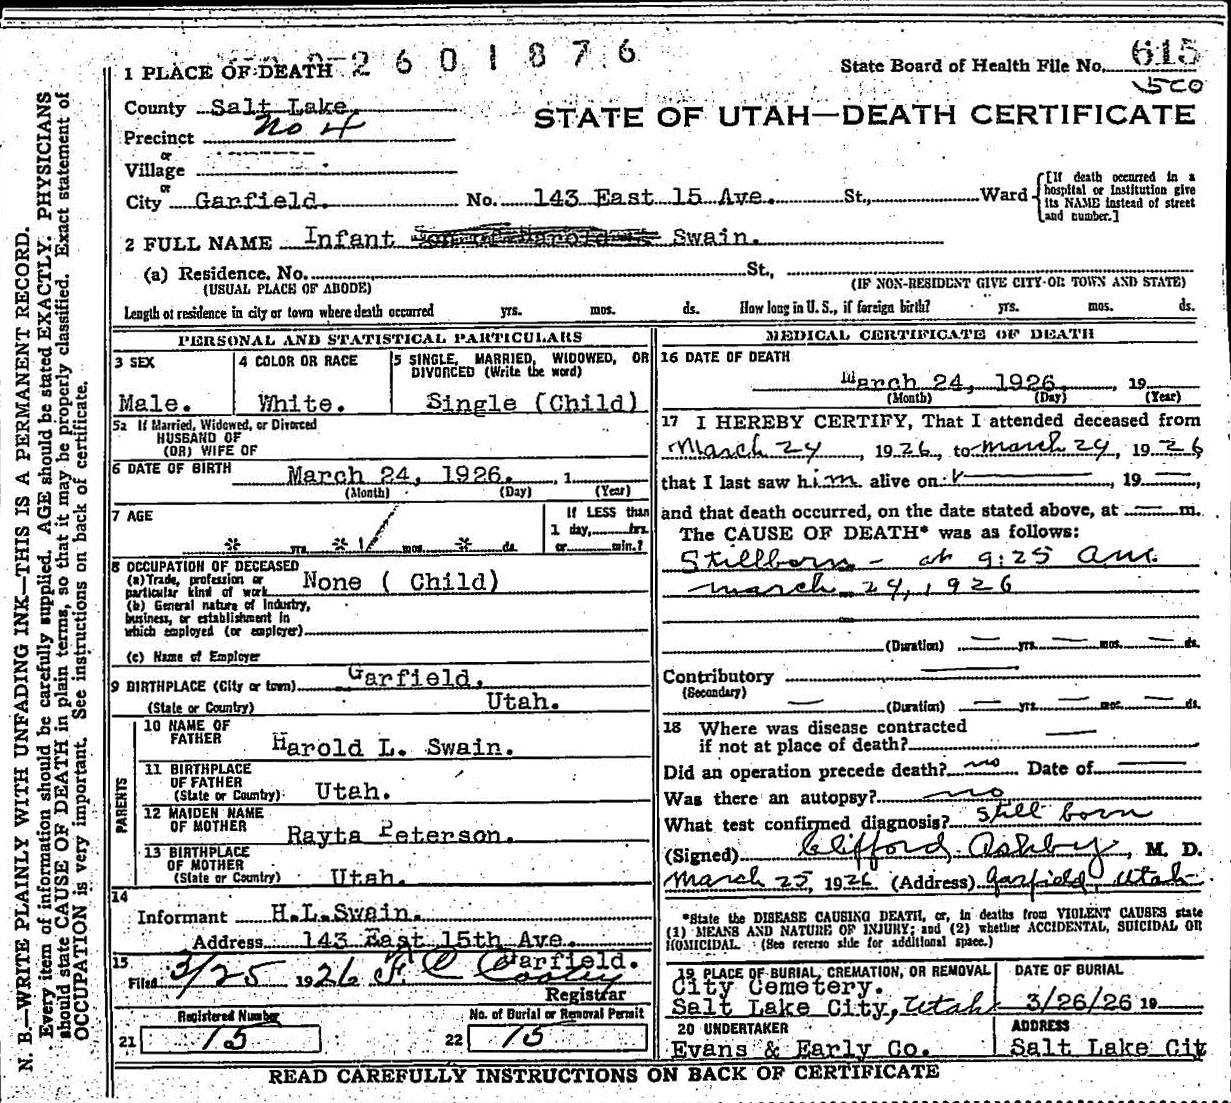 2601876
1 PLACE OF DEATH
State Board of Health File No. 615
County Salt Lake.
STATE OF UTAH—DEATH CERTIFICATE
Precinct No 4
or
Village
or
City Garfield. No. 143 East 15 Ave. St., Ward
[If death occurred in a hospital or institution give its NAME instead of street and number.]
2 FULL NAME Infant Swain.
(a) Residence. No. St.,
(USUAL PLACE OF ABODE) (IF NON-RESIDENT GIVE CITY OR TOWN AND STATE)
Length of residence in city or town where death occurred yrs. mos. ds. How long in U. S., if foreign birth? yrs. mos. ds.
PERSONAL AND STATISTICAL PARTICULARS
3 SEX
Male.
4 COLOR OR RACE
White.
5 SINGLE, MARRIED, WIDOWED, OR
DIVORCED (Write the word)
Single (Child)
5a If Married, Widowed, or Divorced
HUSBAND OF
(OR) WIFE OF
6 DATE OF BIRTH March 24, 1926. , 1
(Month) (Day) (Year)
7 AGE
If LESS than
1 day, hrs.
or min.?
* yrs. * mos. * ds.
8 OCCUPATION OF DECEASED
(a) Trade, profession or
particular kind of work None ( Child)
(b) General nature of Industry,
business, or establishment in
which employed (or employer)
(c) Name of Employer
9 BIRTHPLACE (City or town) Garfield,
(State or Country) Utah.
PARENTS
10 NAME OF
FATHER Harold L. Swain.
11 BIRTHPLACE
OF FATHER
(State or Country) Utah.
12 MAIDEN NAME
OF MOTHER Rayta Peterson.
13 BIRTHPLACE
OF MOTHER
(State or Country) Utah.
14
Informant H.L.Swain.
Address 143 East 15th Ave.
Garfield.
15
Filed 3/25 1926
Registrar
Registered Number
21 15
No. of Burial or Removal Permit
22 15
MEDICAL CERTIFICATE OF DEATH
16 DATE OF DEATH
March 24, 1926. , 19
(Month) (Day) (Year)
17 I HEREBY CERTIFY, That I attended deceased from
March 24 , 1926, to March 24, 1926
that I last saw him alive on , 19 ,
and that death occurred, on the date stated above, at m.
The CAUSE OF DEATH* was as follows:
Stillborn - at 9:25 am.
march 24, 1926
(Duration) yrs. mos. ds.
Contributory
(Secondary)
(Duration) yrs. mos. ds.
18 Where was disease contracted
if not at place of death?
Did an operation precede death? no Date of
Was there an autopsy? no
What test confirmed diagnosis? still born
(Signed) Clifford Ashby, M. D.
March 25, 1926 (Address) Garfield, Utah
*State the DISEASE CAUSING DEATH, or, in deaths from VIOLENT CAUSES state
(1) MEANS AND NATURE OF INJURY; and (2) whether ACCIDENTAL, SUICIDAL OR
HOMICIDAL. (See reverse side for additional space.)
19 PLACE OF BURIAL, CREMATION, OR REMOVAL
City Cemetery.
Salt Lake City, Utah
DATE OF BURIAL
3/26/26 19
20 UNDERTAKER
Evans & Early Co.
ADDRESS
Salt Lake Cit
READ CAREFULLY INSTRUCTIONS ON BACK OF CERTIFICATE
N. B.—WRITE PLAINLY WITH UNFADING INK—THIS IS A PERMANENT RECORD.
Every item of information should be carefully supplied. AGE should be stated EXACTLY. PHYSICIANS
should state CAUSE OF DEATH in plain terms, so that it may be properly classified. Exact statement of
OCCUPATION is very important. See instructions on back of certificate.